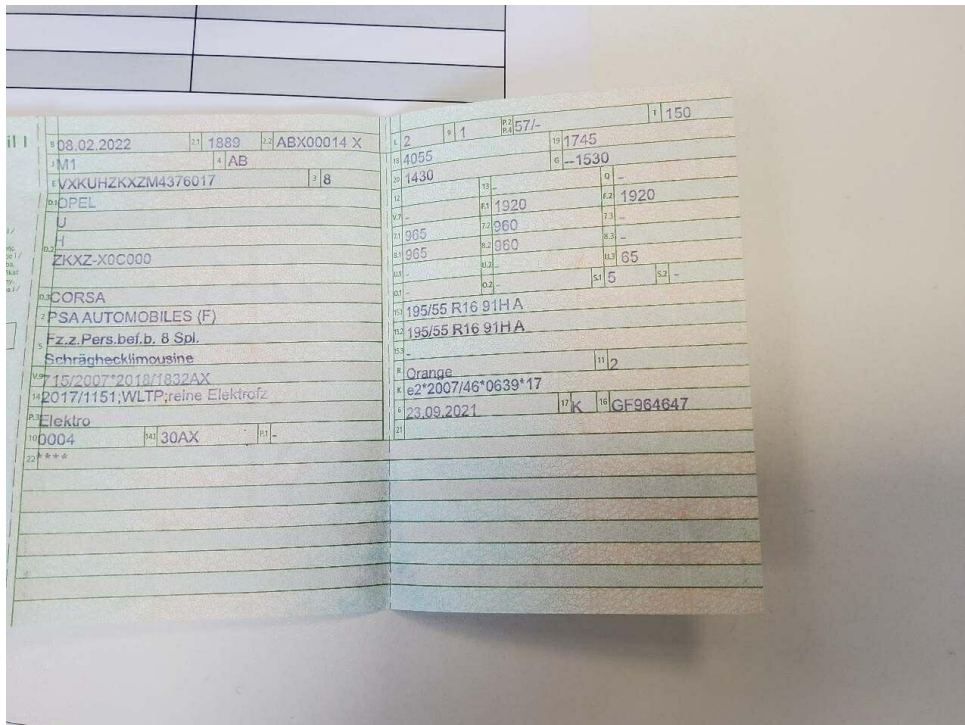 il I
B 08.02.2022 2.1 1889 2.2 ABX00014 X
J M1 4 AB
E VXKUHZKXZM4376017 3 8
D.1 OPEL
D.2 U
H
ZKXZ-X0C000
D.3 CORSA
2 PSA AUTOMOBILES (F)
5 Fz.z.Pers.bef.b. 8 Spl.
Schräghecklimousine
V.9 715/2007*2018/1832AX
14 2017/1151;WLTP;reine Elektrofz
P.3 Elektro
10 0004 14.1 30AX P.1 -
22 ****
L 2 9 1 P.2 P.4 57/- T 150
18 4055 19 1745
20 1430 G --1530
12 - 13 - Q -
V.7 - F.1 1920 F.2 1920
7.1 965 7.2 960 7.3 -
8.1 965 8.2 960 8.3 -
U.1 - U.2 - U.3 65
O.1 - O.2 - S.1 5 S.2 -
15.1 195/55 R16 91H A
15.2 195/55 R16 91H A
15.3 -
R Orange 11 2
K e2*2007/46*0639*17
6 23.09.2021 17 K 16 GF964647
21